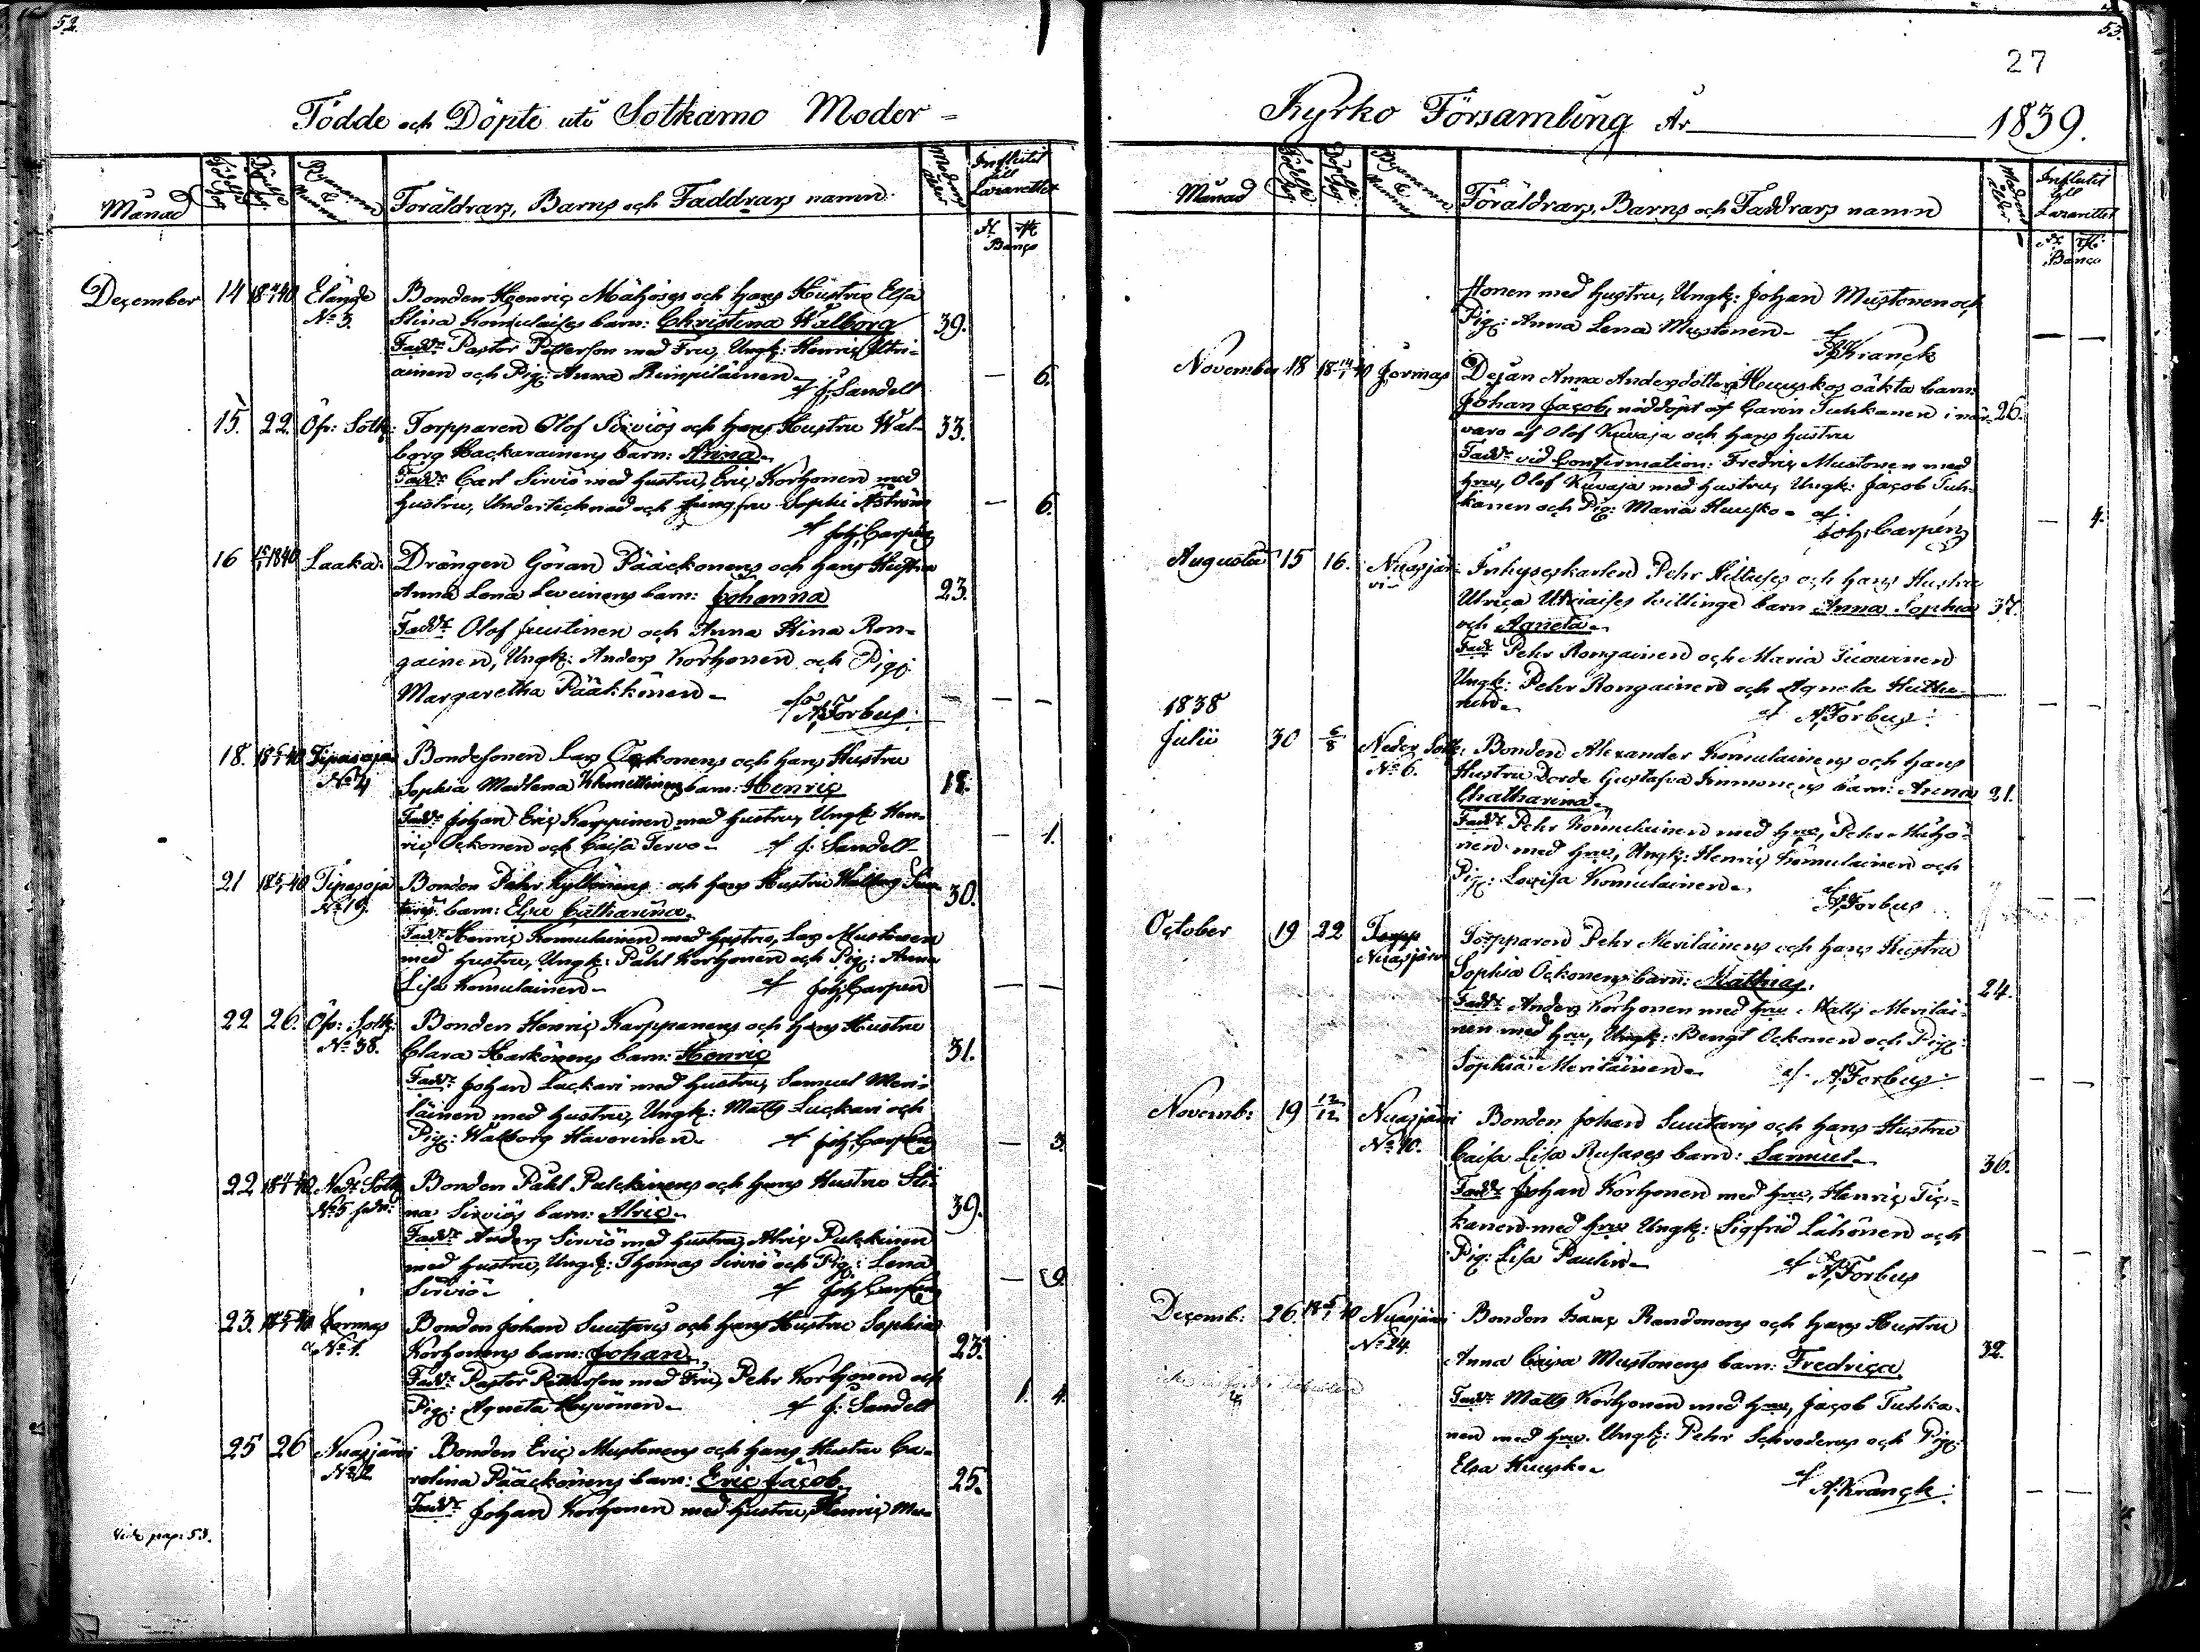 52.
Födde och Döpte uti Sotkamo Moder-
Månad
Födelse Dag
Döpelse Dag
Bynamn & Nummer
Föräldrars, Barns och Faddrars namn
Modrens ålder
Influtit till Lazarettet
Banco
December 14 Elänge Bonden Henric Mähöses och hans Hustru Elsa
No 3. Stina Komulaises barn: Christina Walborg 39.
Fadd: Pastor Petterson med Fru, Ungk: Henric
ainen och Pig: Anna Rimpiläinen 6.
af J. Sandelt
15. 22. Öfr: Sotk: Torpparen Olof Sirviös och hans Hustru Wal- 33.
borg Hackarainens barn: Anna
Fadd: Carl Sirviö med hustru, Eric Korhonen med
hustru, Undertecknad och Jungfru Sophie Åström 6.
af Joh. Carpén
16 1840 Laaka Drängen Göran Pääckönens och hans Hustru
Anna Lena barn: Johanna 23.
Fadd: Olof Juustinen och Anna Stina Ron-
gainen, Ungk: Anders Korhonen och Pig:
Margaretha Pääkkönen
af A. Forbus.
18. Tipasoja Bondesonen Lars Ockonens och hans Hustru
No 4 Sophia Madlena barn: Henric 18.
Fadd: Johan Eric Karppinen med hustru, Ungk: Hen-
ric Ockonen och Caisa Tervo 1.
af J. Sandelt
21 Tipasoja Bonden Pehr Kyllönens och hans Hustru Walborg
No 19. barn: Elsa Catharina 30.
Fadd: Henric Komulainen med hustru, Lars Mustonen
med hustru, Ungk: Påhl Korhonen och Pig: Anna
Lisa Komulainen
af Joh. Carpén
22 26. Öfr: Sotk: Bonden Henric Karppanens och hans Hustru
No 38. Clara Harkönens barn: Henric 31.
Fadd: Johan Luckari med hustru, Samuel Meri-
läinen med hustru, Ungk: Matts Luckari och
Pig: Walborg Haverinen 3.
af Joh. Carpén
22 Nedr: Sotk: Bonden Påhl Pulckinens och hans Hustru Sti-
No 5 na Sirviös barn: Alric 39.
Fadd: Anders Sirviö med hustru, Alric Pulckinen
med hustru, Ungk: Thomas Sirviö och Pig: Lena
Sirviö 9.
af Joh. Carpén
23. Jormas Bonden Johan Suutaris och hans Hustru Sophia
No 1. Korhonens barn: Johan 23.
Fadd: Pastor Petterson med Fru, Pehr Korhonen och
Pig: Agneta Hyvönen 1. 4.
af J. Sandelt
25 26 Nuasjärvi Bonden Eric Mustonens och hans Hustru Ca-
No 2 rolina Pääckönens barn: Eric Jacob 25.
Fadd: Johan Korhonen med hustru, Henric Mu-
Vide pag: 53.
53.
27
Kyrko Församling År 1839.
Månad
Födelse Dag
Döpelse Dag
Bynamn & Nummer
Föräldrars, Barns och Faddrars namn
Modrens ålder
Influtit till Lazarettet
Banco
stonen med hustru, Ungk: Johan Mustonen och
Pig: Anna Lena Mustonen
af A. Kranck
November 18 Jormas Dejan Anna Andersdotter Huuskos oäkta barn
Johan Jacob, nöddöpt af Carin Tuhkanen i när- 26.
varo af Olof Kuvaja och hans hustru
Fadd: vid Confirmation: Fredric Mustonen med
hru, Olof Kuvaja med hustru, Ungk: Jacob Tuh-
kanen och Pig: Maria Huusko 4.
af Joh. Carpén
Augusti 15 16. Nuasjär- Inhyseskarlen Pehr och hans Hustru
vi Ulrica tvillinge barn Anna Sophia 37.
och Agneta
Fadd: Pehr Rongainen och Maria
Ungk: Pehr Rongainen och Agneta
af A. Forbus.
1838
Julii 30 6/8 Neder Sotk: Bonden Alexander Komulainens och hans
No 6. Hustru Dorde Gustafva Immonens barn: Anna 21.
Chatharina
Fadd: Pehr Komulainen med hru, Pehr Mähö-
nen med hru, Ungk: Henric Komulainen och
Pig: Lovisa Komulainen
af A. Forbus
October 19 22 Torpp Torpparen Pehr Meriläinens och hans Hustru
Nuasjärvi Sophia Ockonens barn: Mathias. 24.
Fadd: Anders Korhonen med hru, Matts Meriläi-
nen med hru, Ungk: Bengt Ockonen och Pig:
Sophia Meriläinen
af A. Forbus
Novemb: 19 12/12 Nuasjärvi Bonden Johan Suutaris och hans Hustru
No 10. Caisa Lisa Rusases barn: Samuel 36.
Fadd: Johan Korhonen med hru, Henric Tic-
kanen med hru Ungk: Sigfrid Lähönen och
Pig: Lisa Paulin
af A. Forbus
Decemb: 26. Nuasjärvi Bonden Isaac Randonens och hans Hustru
No 24. Anna Caisa Mustonens barn: Fredrica 32.
Fadd: Matts Korhonen med hru, Jacob Tuhka-
nen med hru. Ungk: Pehr Schroderus och Pig:
Elsa Huusko
af A. Kranck.